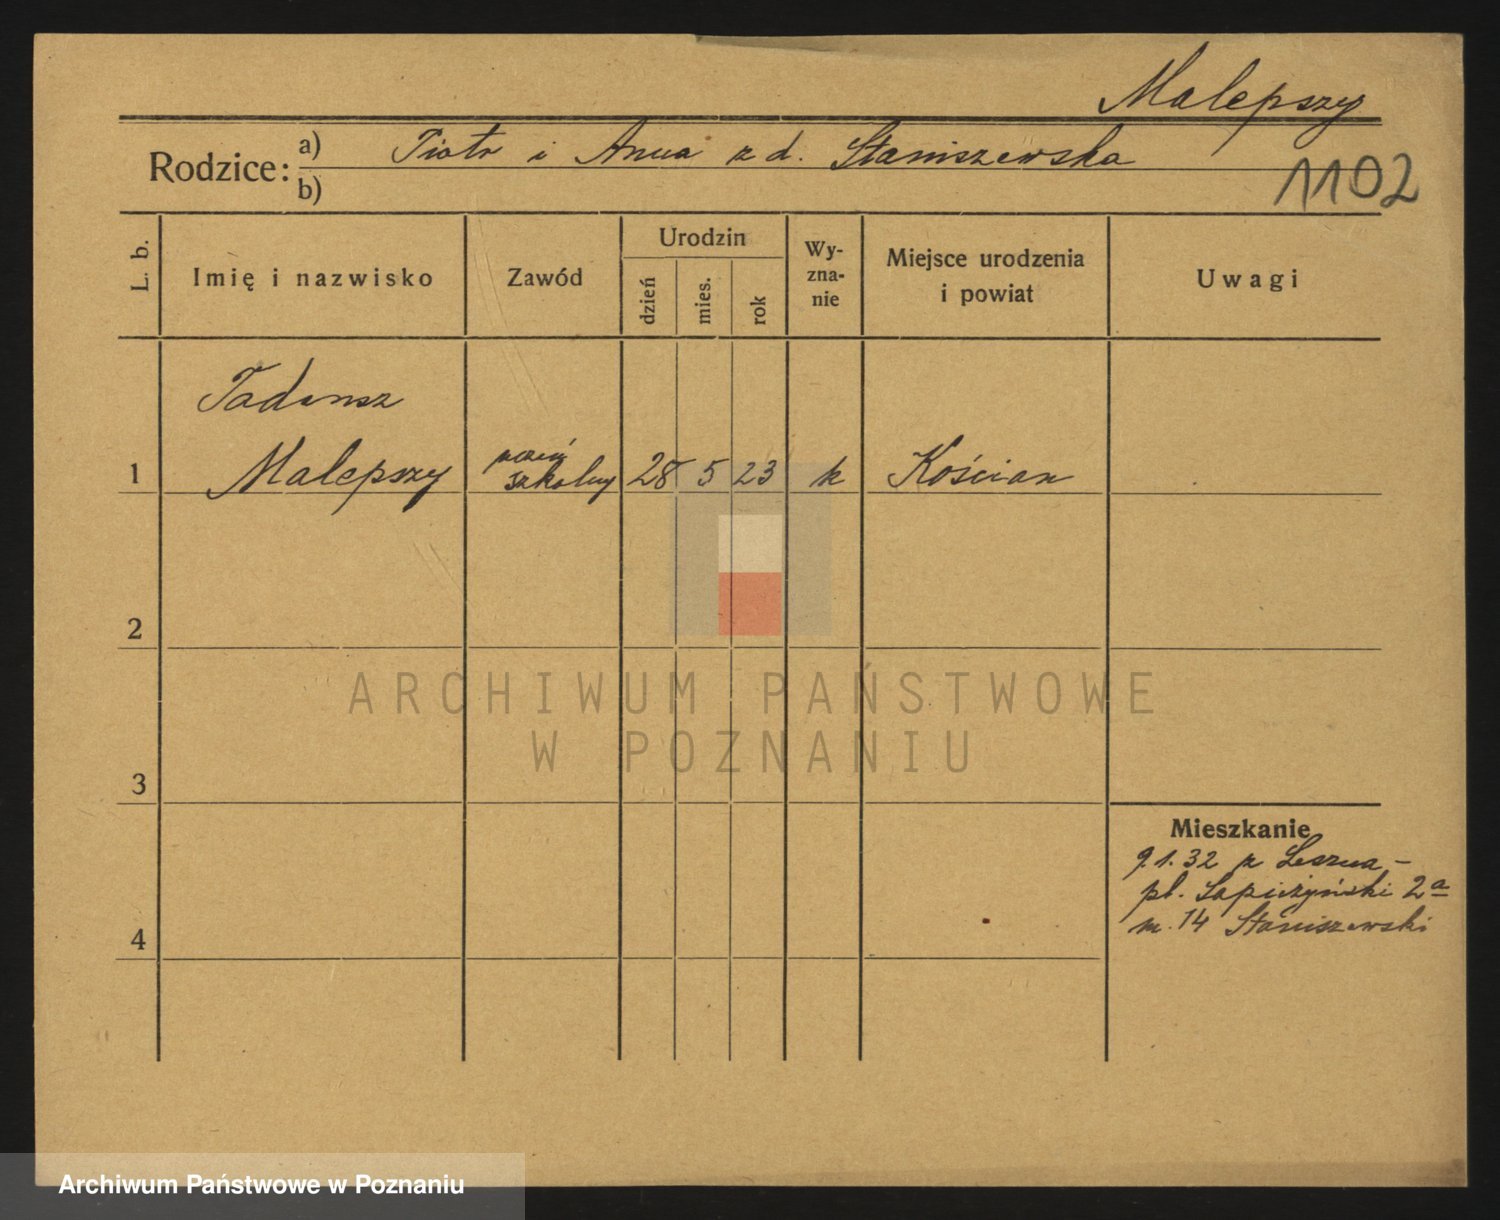 Malepszy
Rodzice: a) Piotr i Anna z d. Staniszewska
b)
1102
L. b.
Imię i nazwisko
Zawód
Urodzin
dzień
mies.
rok
Wy-
zna-
nie
Miejsce urodzenia
i powiat
Uwagi
Tadeusz
1 Malepszy uczeń szkolny 28 5 23 k Kościan
2
ARCHIWUM PAŃSTWOWE
W POZNANIU
3
Mieszkanie
9.1.32 z Leszna -
pl. Sapieżyński 2a
m. 14 Staniszewski
4
Archiwum Państwowe w Poznaniu